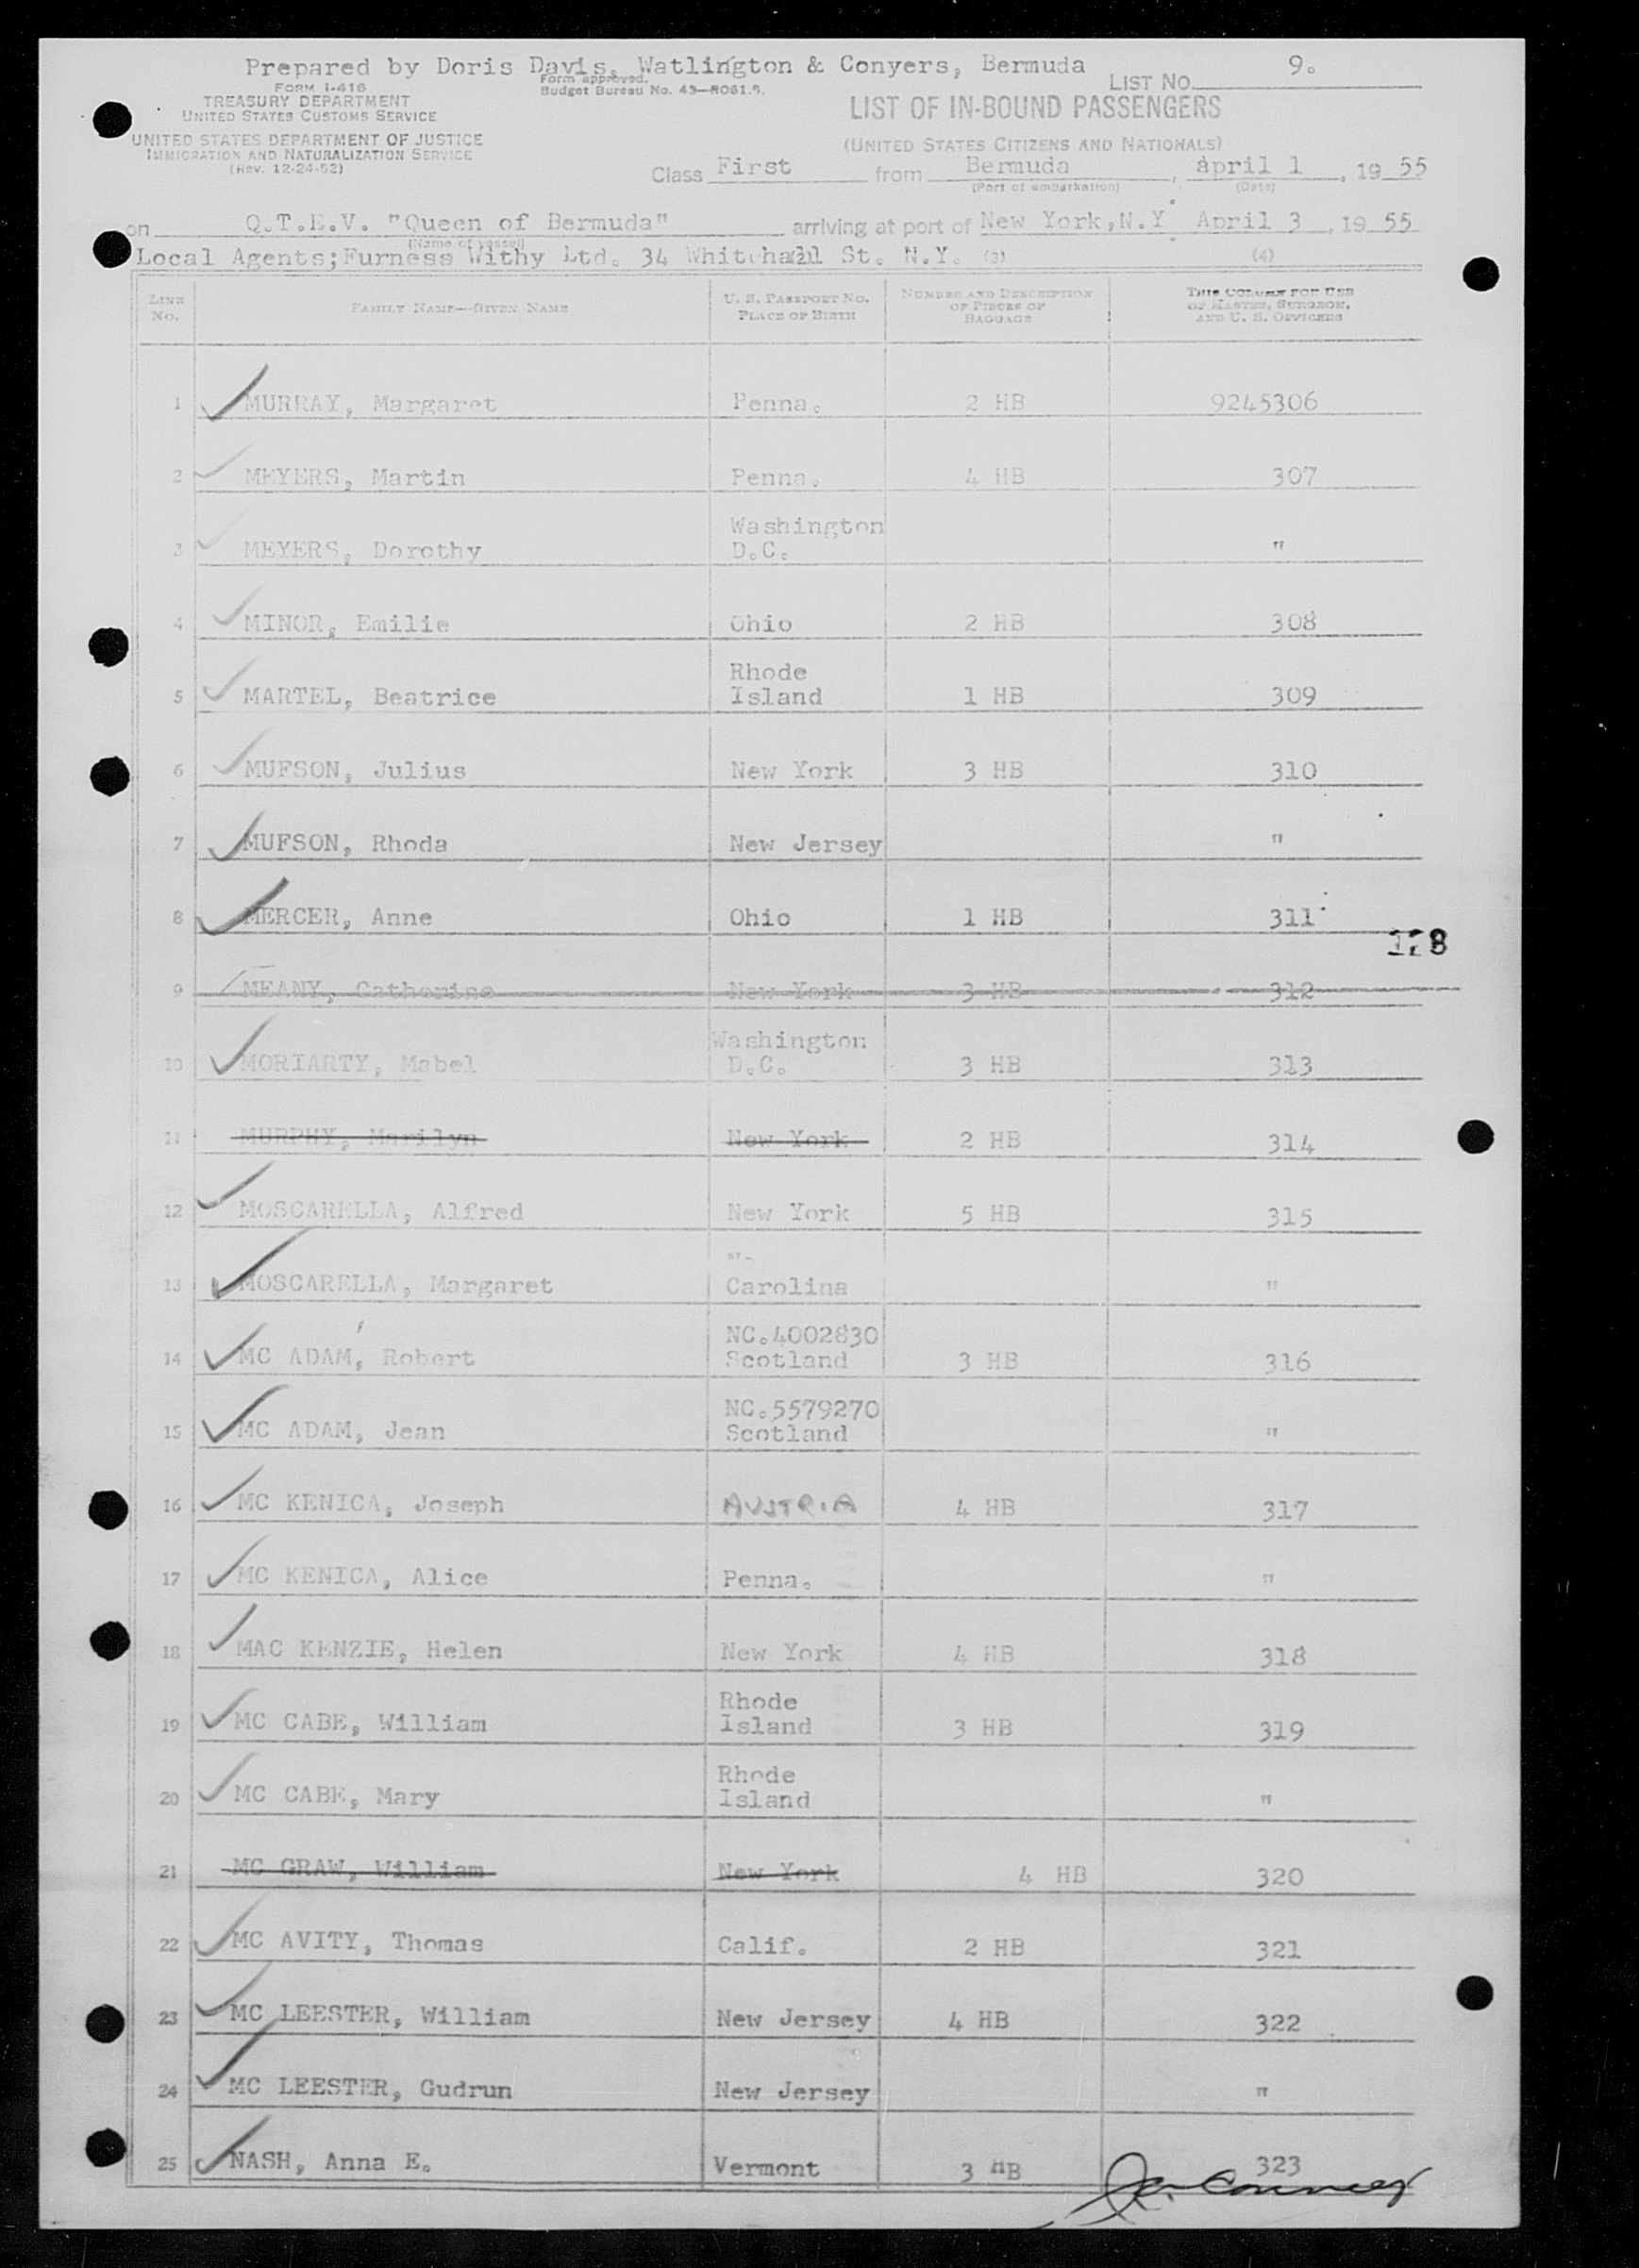 Prepared by Doris Davis, Watlington & Conyers, Bermuda
LIST NO. 9.
FORM I-416
Form approved.
TREASURY DEPARTMENT
Budget Bureau No. 43—R061.5.
UNITED STATES CUSTOMS SERVICE
LIST OF IN-BOUND PASSENGERS
UNITED STATES DEPARTMENT OF JUSTICE
(UNITED STATES CITIZENS AND NATIONALS)
IMMIGRATION AND NATURALIZATION SERVICE
(Rev. 12-24-52)
Class First from Bermuda, april 1, 1955
(Port of embarkation) (Date)
on Q.T.E.V. "Queen of Bermuda" arriving at port of New York, N.Y April 3, 1955
(Name of vessel)
Local Agents; Furness Withy Ltd. 34 Whitehall St. N.Y. (3) (4)
LINE No. FAMILY NAME—GIVEN NAME U. S. PASSPORT NO. PLACE OF BIRTH NUMBER AND DESCRIPTION OF PIECES OF BAGGAGE THIS COLUMN FOR USE OF MASTER, SURGEON, AND U. S. OFFICERS
1 MURRAY, Margaret Penna. 2 HB 9245306
2 MEYERS, Martin Penna. 4 HB 307
3 MEYERS, Dorothy Washington D.C. "
4 MINOR, Emilie Ohio 2 HB 308
5 MARTEL, Beatrice Rhode Island 1 HB 309
6 MUFSON, Julius New York 3 HB 310
7 MUFSON, Rhoda New Jersey "
8 MERCER, Anne Ohio 1 HB 311
9 MEANY, Catherine New York 3 HB 312
10 MORIARTY, Mabel Washington D.C. 3 HB 313
11 MURPHY, Marilyn New York 2 HB 314
12 MOSCARELLA, Alfred New York 5 HB 315
13 MOSCARELLA, Margaret Carolina "
14 MC ADAM, Robert NC.4002830 Scotland 3 HB 316
15 MC ADAM, Jean NC.5579270 Scotland "
16 MC KENICA, Joseph AUSTRIA 4 HB 317
17 MC KENICA, Alice Penna. "
18 MAC KENZIE, Helen New York 4 HB 318
19 MC CABE, William Rhode Island 3 HB 319
20 MC CABE, Mary Rhode Island "
21 MC GRAW, William New York 4 HB 320
22 MC AVITY, Thomas Calif. 2 HB 321
23 MC LEESTER, William New Jersey 4 HB 322
24 MC LEESTER, Gudrun New Jersey "
25 NASH, Anna E. Vermont 3 HB 323